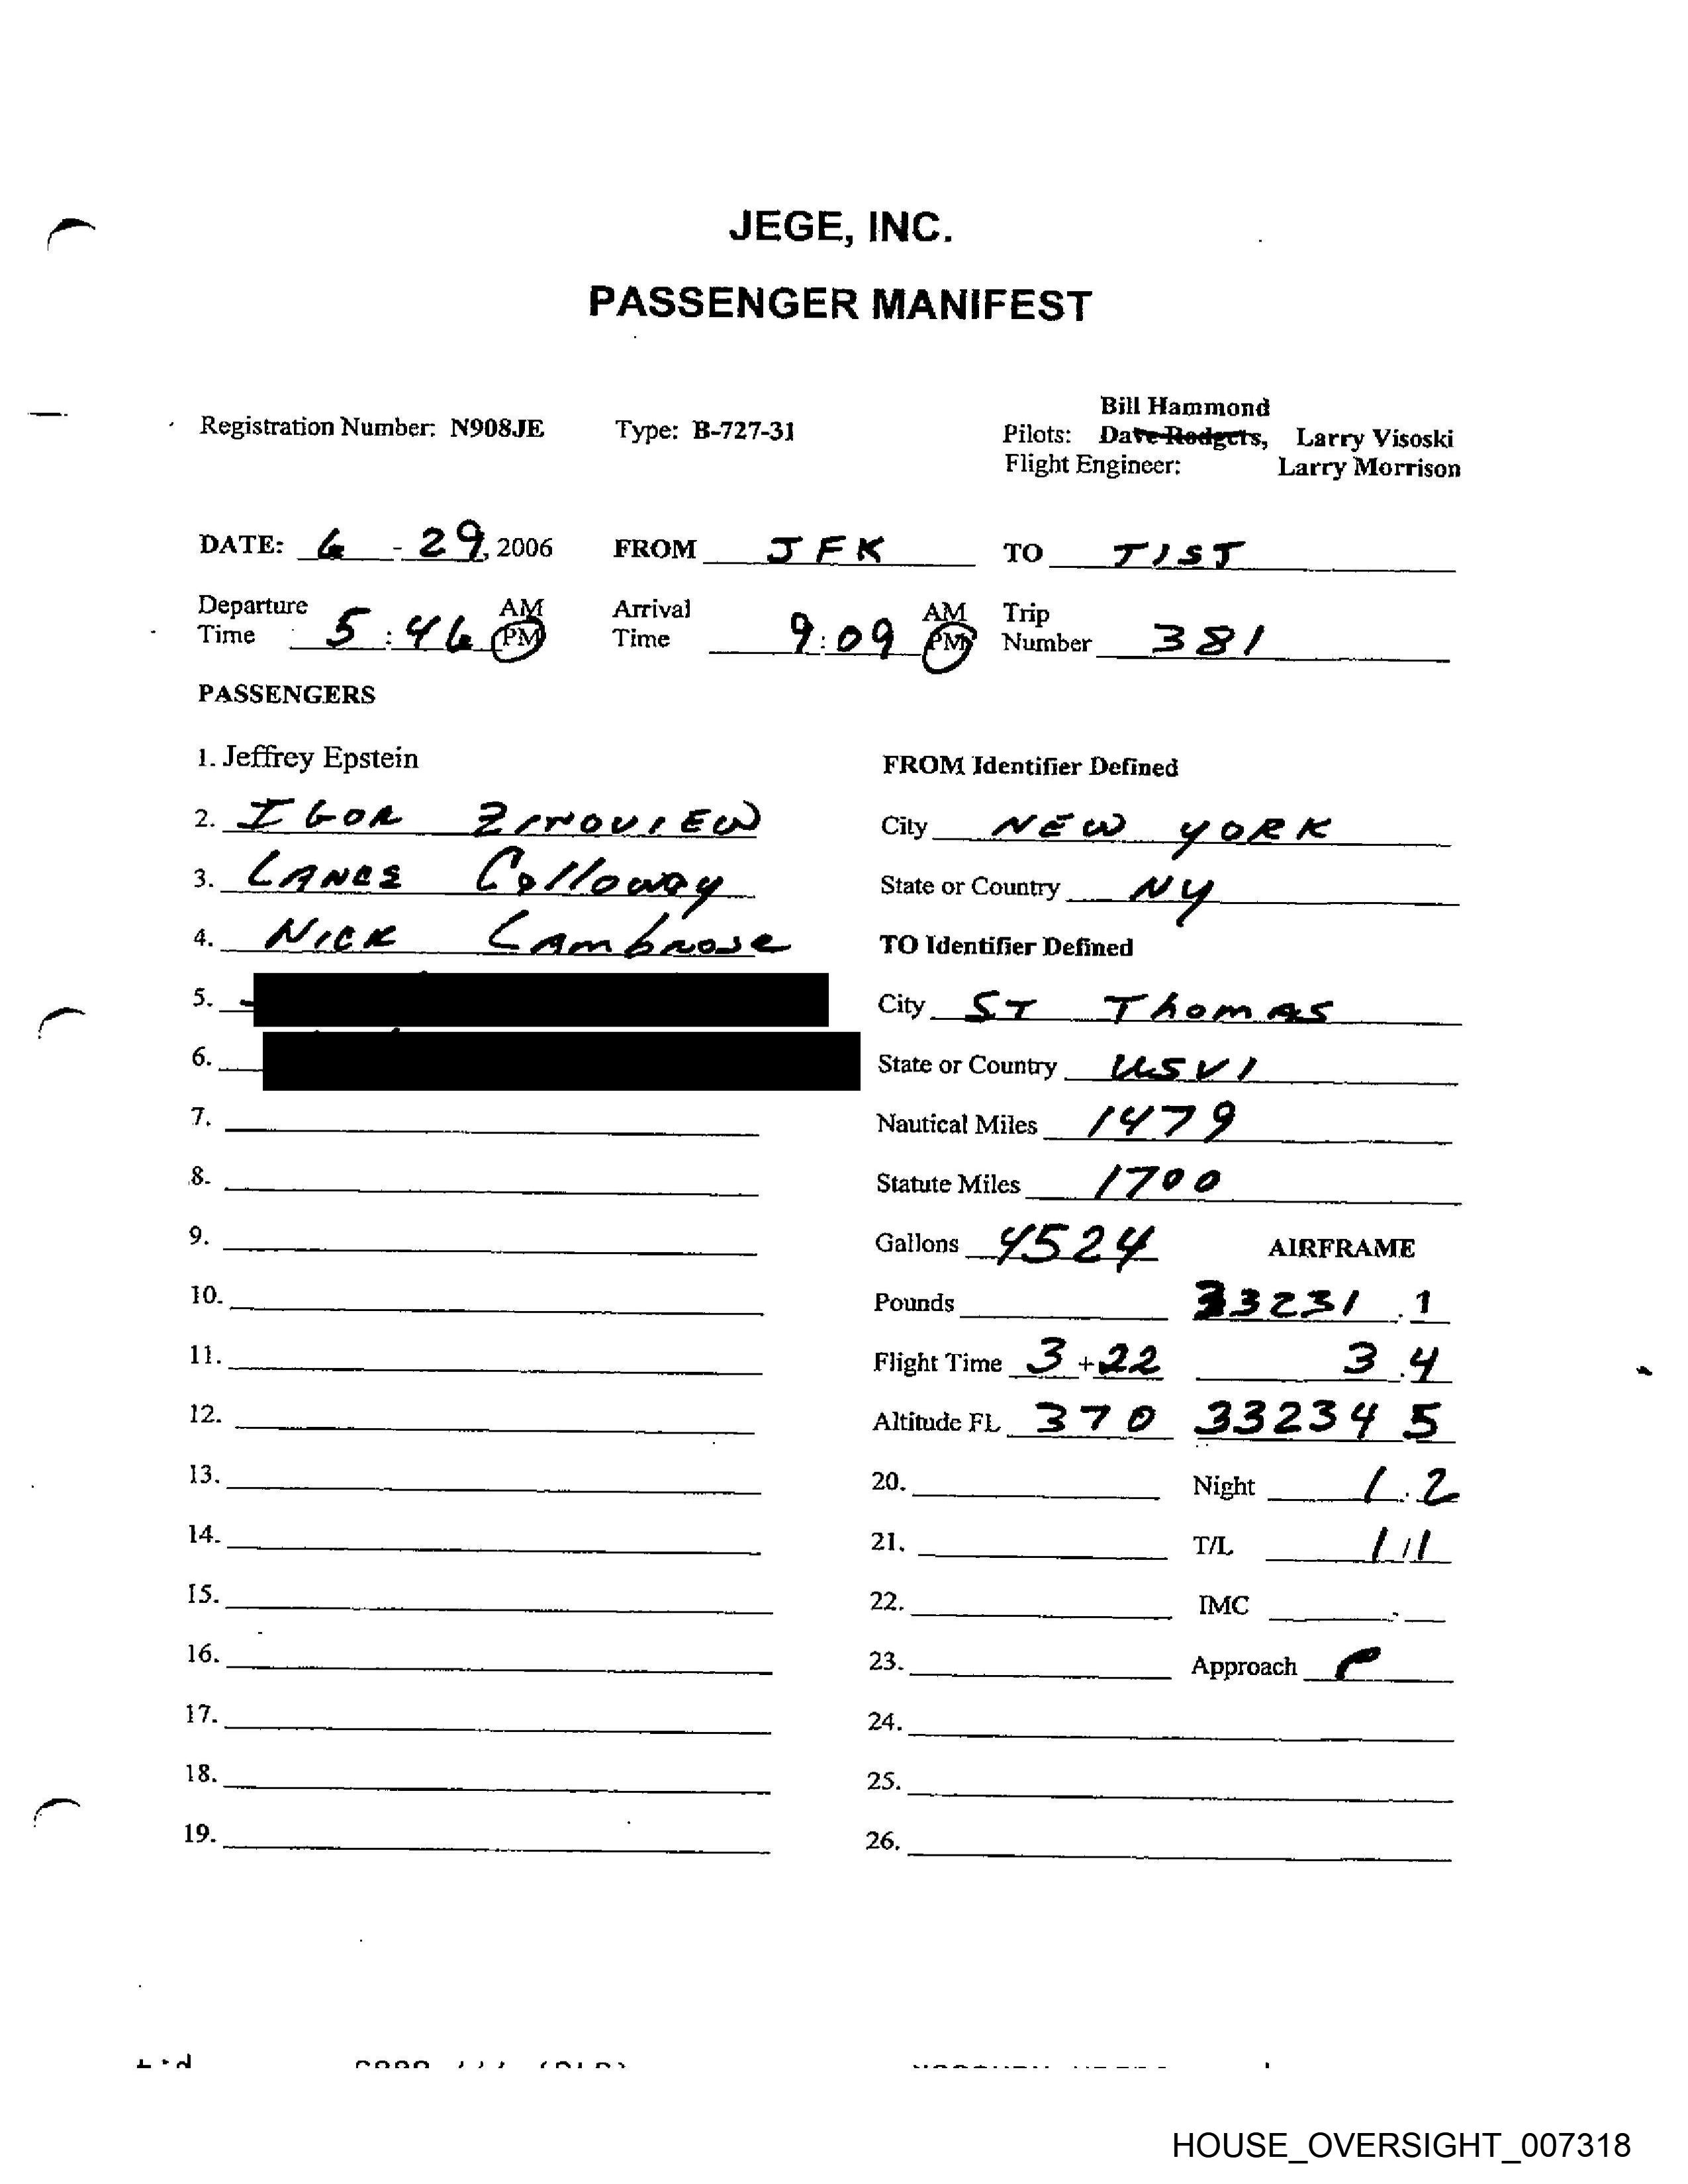 JEGE, INC.
PASSENGER MANIFEST
Bill Hammond
Registration Number: N908JE Type: B-727-31 Pilots: Dave Rodgers, Larry Visoski
Flight Engineer: Larry Morrison
DATE: 6 - 29, 2006 FROM JFK TO TIST
Departure Time 5:46 AM PM Arrival Time 9:09 AM PM Trip Number 381
PASSENGERS
1. Jeffrey Epstein
2. IGOR ZINOVIEW
3. LANCE Calloway
4. NICK LAmbrose
5.
6.
7.
8.
9.
10.
11.
12.
13.
14.
15.
16.
17.
18.
19.
FROM Identifier Defined
City NEW YORK
State or Country NY
TO Identifier Defined
City ST ThomAS
State or Country USVI
Nautical Miles 1479
Statute Miles 1700
Gallons 4524 AIRFRAME
Pounds 33231.1
Flight Time 3+22 3.4
Altitude FL 370 33234 5
20. Night 1.2
21. T/L 1/1
22. IMC
23. Approach
24.
25.
26.
HOUSE_OVERSIGHT_007318